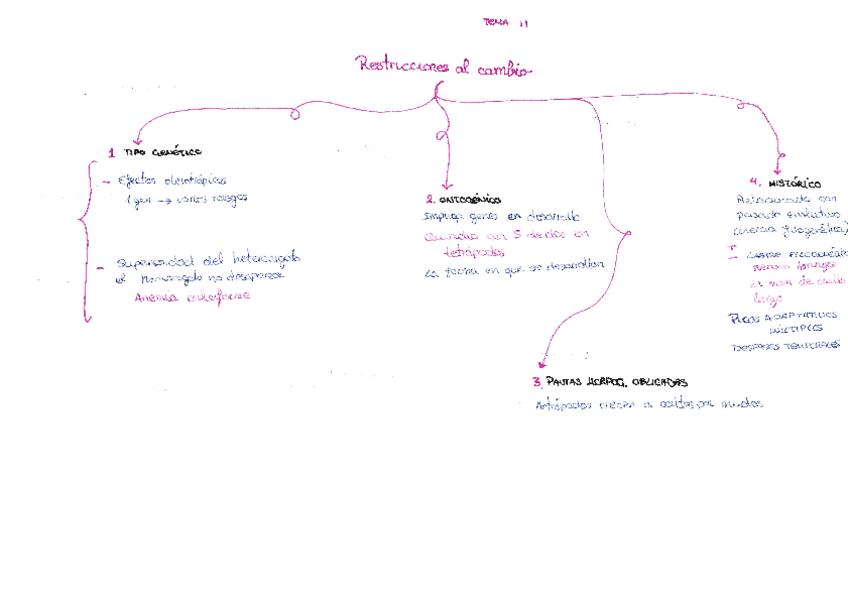 TEMA 11
Restricciones al cambio
1 TIPO GENÉTICO
- Efectos pleiotrópicos
1 gen → varios rasgos
- Superioridad del heterocigoto
el homocigoto no desaparece
Anemia falciforme
2. ONTOGÉNICO
Implica genes en desarrollo
con 5 dedos en
tetrápodos
La forma en que se desarrollan
3. PAUTAS MORFOG. OBLIGADAS
Artrópodos crecen a saltos por mudas
4. HISTÓRICO
Relacionado con
pasado evolutivo
(inercia filogenética)
nervio laríngeo
largo
PICOS ADAPTATIVOS
MÚLTIPLES
DESFASES TEMPORALES